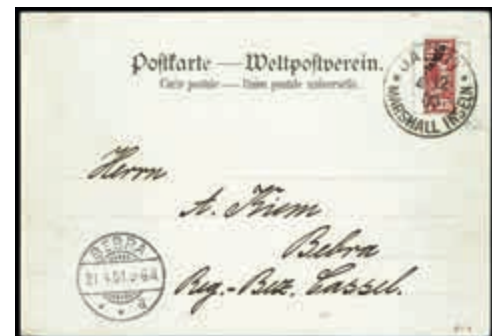 Postkarte — Weltpostverein.
Carte postale — Union postale universelle.
MARSHALL INSELN
Herrn
A. Kiem
Bebra
Reg.-Bez. Cassel.
BEBRA